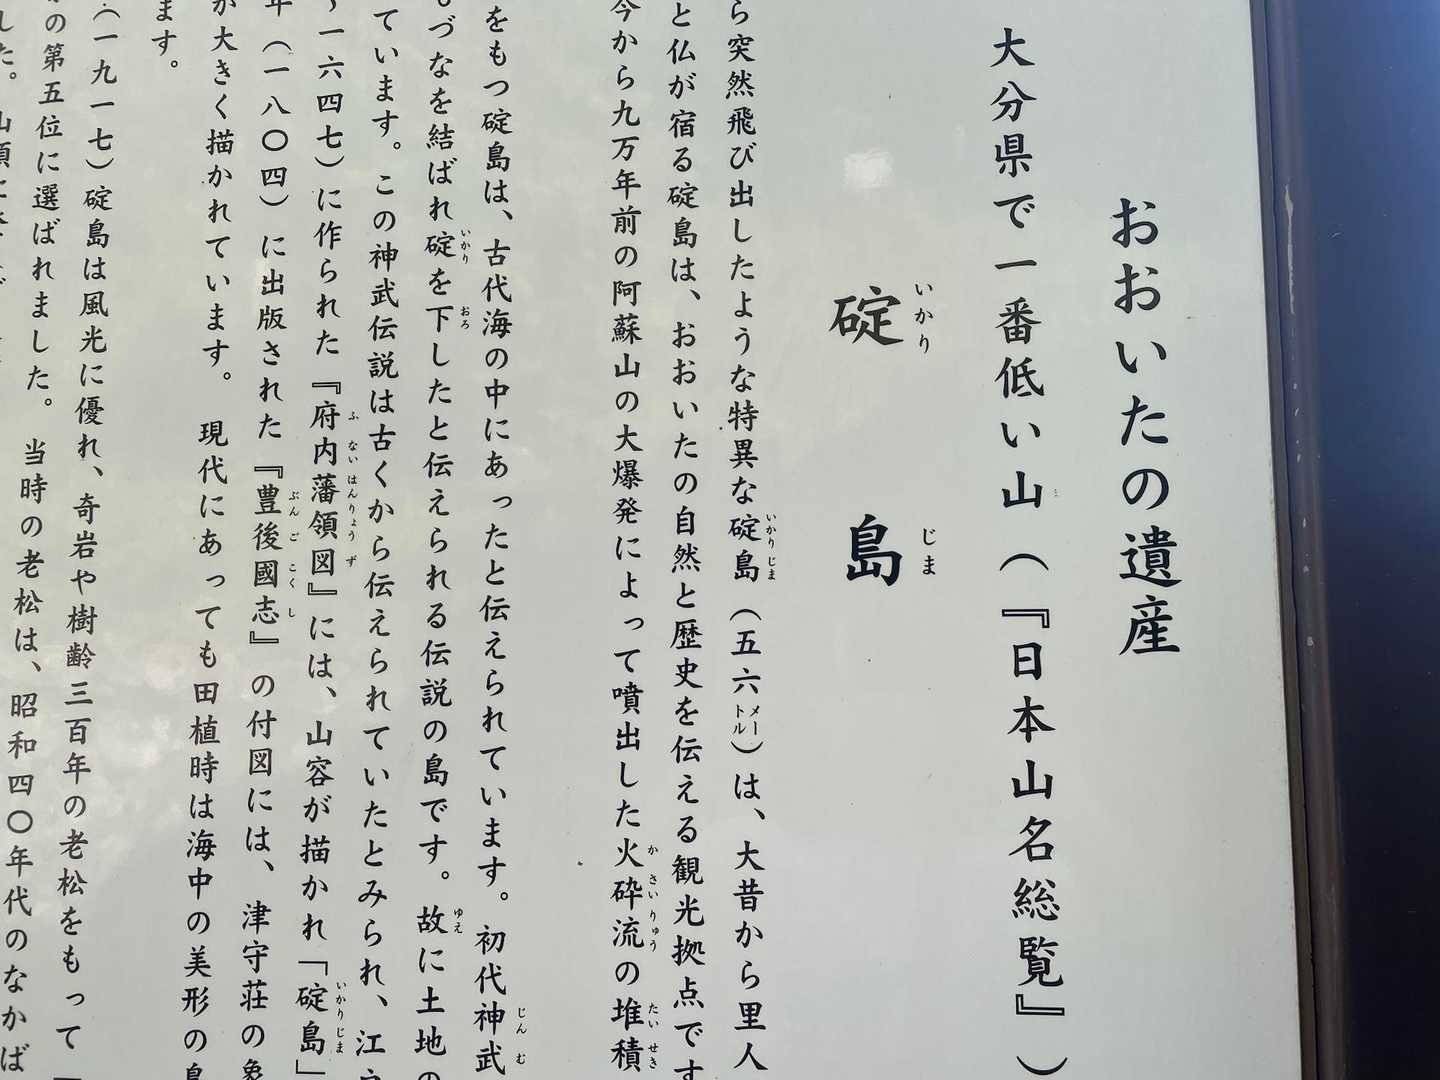 おおいたの遺産
大分県で一番低い山（『日本山名総覧』）
碇島
いかりじま
ら突然飛び出したような特異な碇島（五六メートル）は、大昔から里人
と仏が宿る碇島は、おおいたの自然と歴史を伝える観光拠点です
今から九万年前の阿蘇山の大爆発によって噴出した火砕流の堆積
をもつ碇島は、古代海の中にあったと伝えられています。初代神武
もづなを結ばれ碇を下したと伝えられる伝説の島です。故に土地の
ています。この神武伝説は古くから伝えられていたとみられ、江
一六四七）に作られた『府内藩領図』には、山容が描かれ「碇島」
年（一八〇四）に出版された『豊後國志』の付図には、津守荘の象
が大きく描かれています。現代にあっても田植時は海中の美形の島
ます。
（一九一七）碇島は風光に優れ、奇岩や樹齢三百年の老松をもって
の第五位に選ばれました。当時の老松は、昭和四〇年代のなかば
した。山頂に